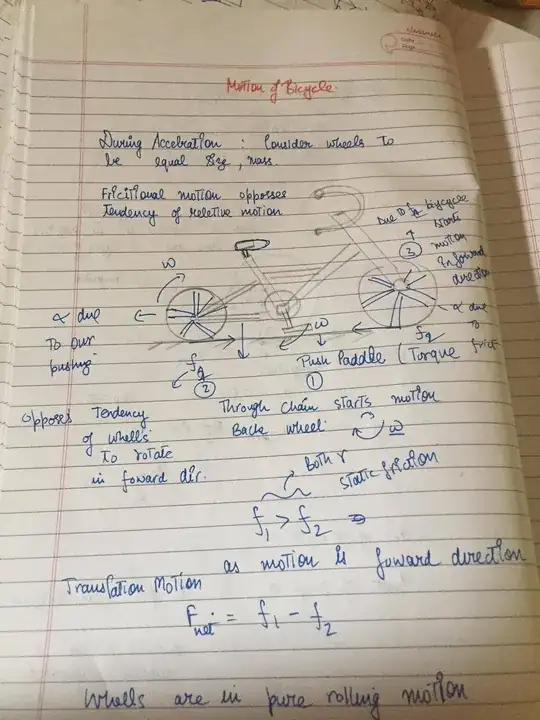 Motion of Bicycle.
During Accelration : Consider wheels to
be equal size, mass.
Fricitional motion opposses
tendency of reletive motion
Due to f₁ biycycle
starts
③ motion
in foward
direction
ω
α due
to our
pushing
α due
to
frict
ω
f₂
f₁
②
Push Paddle (Torque
①
Opposes Tendency
of wheels
to rotate
in foward dir.
Through chain starts motion
Back wheel.
ω
Both r
Static friction
f₁ > f₂ ⇒
as motion is foward direction
Translation Motion
Fnet = f₁ - f₂
Wheels are in pure rolling motion